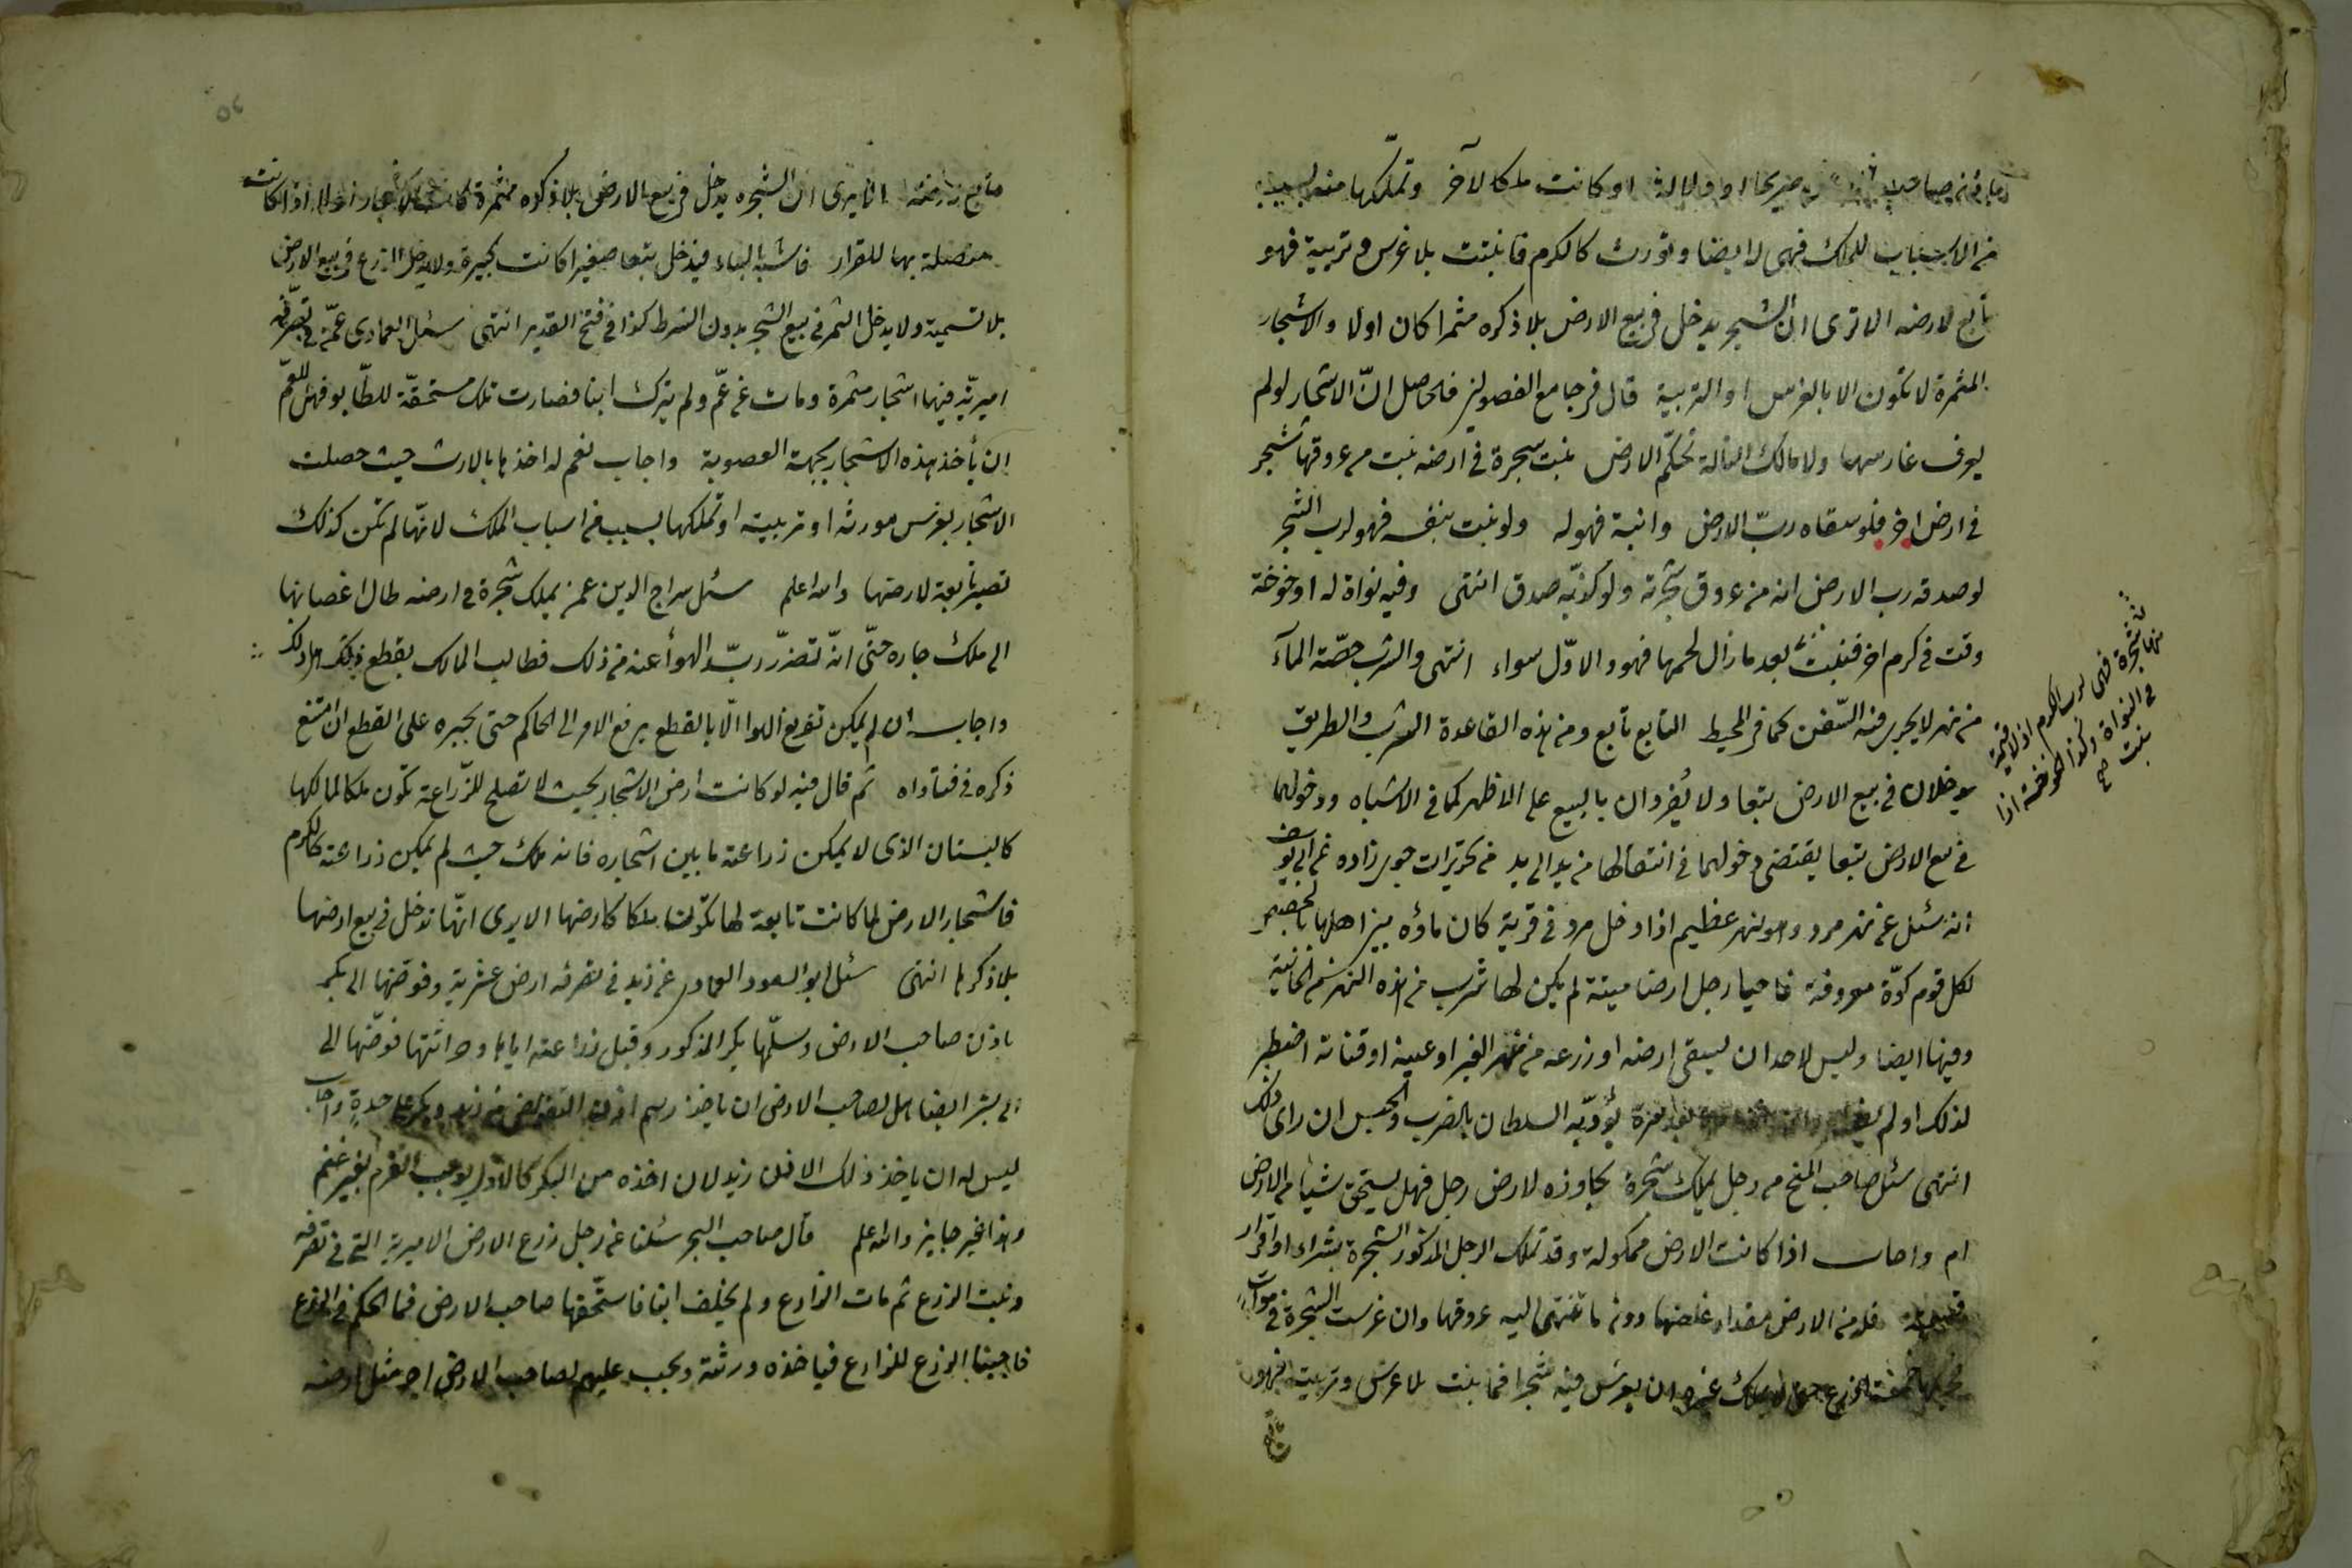 صريحا او دلالة او كانت ملكا لآخر وتملّكها منه بسبب
من الاسباب للملك فهى له ايضا وتورث كالكرم فما نبتت بلا غرس وتربية فهو
تابع لارضه الا ترى انّ الشجر يدخل فى بيع الارض بلا ذكره مثمرا كان اولا والاشجار
المثمرة لا تكون الا بالغرس او التربية قال فى جامع الفصولين فلحاصل انّ الاشجار لو لم
يعرف غارسها ولا مالك التالة تحكّم الارض نبت شجرة فى ارضه نبت من عروقها شجر
فى ارض اخر فلو سقاه ربّ الارض وانبته فهو له ولو نبت بنفسه فهو لرب الشجر
لو صدقه رب الارض انه من عروق شجرته ولو كذبّه صدق انتهى وفيه نواة له او خوخة
وقت فى كرم اخر فنبتت بعد ما زال لحمها فهو والاوّل سواء انتهى والشرب حصّة المآء
من نهر لا يجرى فيه السّفن كما فى المحيط التابع تابع ومن هذه القاعدة الشرب والطريق
يدخلان فى بيع الارض تبعا ولا يُفردان بالبيع على الاظهر كما فى الاشباه ودخولهما
فى بيع الارض تبعا يقتضى دخولهما فى انتقالها من يد الى يد من تحريرات جوى زاده عن ابى يوسف
انه سئل عن نهر مرو وهو نهر عظيم اذا دخل مرو فى قرية كان ماؤه بين اهلها بالحصص
لكل قوم كوّة معروفة فاحيا رجل ارضا ميتة لم يكن لها شرب من هذه النهر من الخانية
وفيها ايضا وليس لاحد ان يسقى ارضه او زرعه من نهر الغير او عينه او قناته اضطر
لذلك او لم مرة يؤدّبه السلطان بالضرب والحبس ان راى ذلك
انتهى سئل صاحب المنح من رجل يملك شجرة مجاوزه لارض رجل فهل يستحق شيئا من الارض
ام واجاب اذا كانت الارض مملوكة وقد تملك الرجل المذكور الشجرة بشراء او اقرار
فله من الارض مقدار غلظها دون ما تنتهى اليه عروقها وان غرست الشجرة فى موات
غيره ان يغرس فيه شجرا فما نبت بلا غرس وتربية فهو
تابع
منها شجرة فهى لرب الكرم اذ لا قيمة
فى النواة وكذا الخوخة اذا
نبتت صح
تابع لارضه الا يرى انّ الشجره يدخل فى بيع الارض بلا ذكره مثمرة كانت اولا اذا كانت
متصلة بها للقرار فاشبه البناء فيدخل تبعا صغيرا كانت كبيرة ولا يدخل الزرع فى بيع الارض
بلا تسمية ولا يدخل الثمر فى بيع الشجر بدون الشرط كذا فى فتح القدير انتهى سئل العمادى عمّن فى تصرّفه
اميريّة فيها اشجار مثمرة ومات عن عمّ ولم يترك ابنا فصارت تلك مستحقّة للطّابو فهل للعم
ان يأخذ هذه الاشجار بجهة العصوبة واجاب نعم له اخذها بالارث حيث حصلت
الاشجار بغرس مورثه او تربيته او تملكها بسبب من اسباب الملك لانّها لم تكن كذلك
تصير تابعة لارضها والله اعلم سئل سراج الدين عمن يملك شجرة فى ارضه طال اغصانها
الى ملك جاره حتّى انّه تضرّر ربّ الهوأ عنه من ذلك فطالب المالك بقطع ذلك هل له ذلك
واجاب ان لم يمكن تفريغ الهوا الّا بالقطع يرفع الامر الى الحاكم حتى يجبره على القطع ان امتنع
ذكره فى فتاواه ثم قال فيه لو كانت ارض الاشجار بحيث لا تصلح للزّراعة تكون ملكا لمالكها
كالبستان الذى لا يمكن زراعة ما بين اشجاره فانه ملك حيث لم يمكن زراعته كالكرم
فاشجار الارض لما كانت تابعة لها تكون ملكا كارضها الا يرى انّها تدخل فى بيع ارضها
بلا ذكرها انتهى سئل ابو السعود العمادى عن زيد فى تصرفه ارض عشرية وفوضها الى بكر
باذن صاحب الارض وسلّمها بكر المذكور وقبل زراعته اياها وحراثتها فوّضها الى
الى بشر ايضا هل لصاحب الارض ان ياخذ رسم اذن التفويض من زيد وبكر على حدةٍ واجاب
ليس له ان ياخذ ذلك الا من زيد لان اخذه من البكر كالاول يوجب الغرم بغير غنم
وهذا غير جايز والله اعلم قال صاحب البحر سئلنا عن رجل زرع الارض الاميرية التى فى تصرفه
ونبت الزرع ثم مات الزارع ولم يخلف ابنا فاستحقها صاحب الارض فما الحكم فى الزرع
فاجبنا الزرع للزارع فياخذه ورثته ويجب عليهم لصاحب الارض اجر مثل ارضه